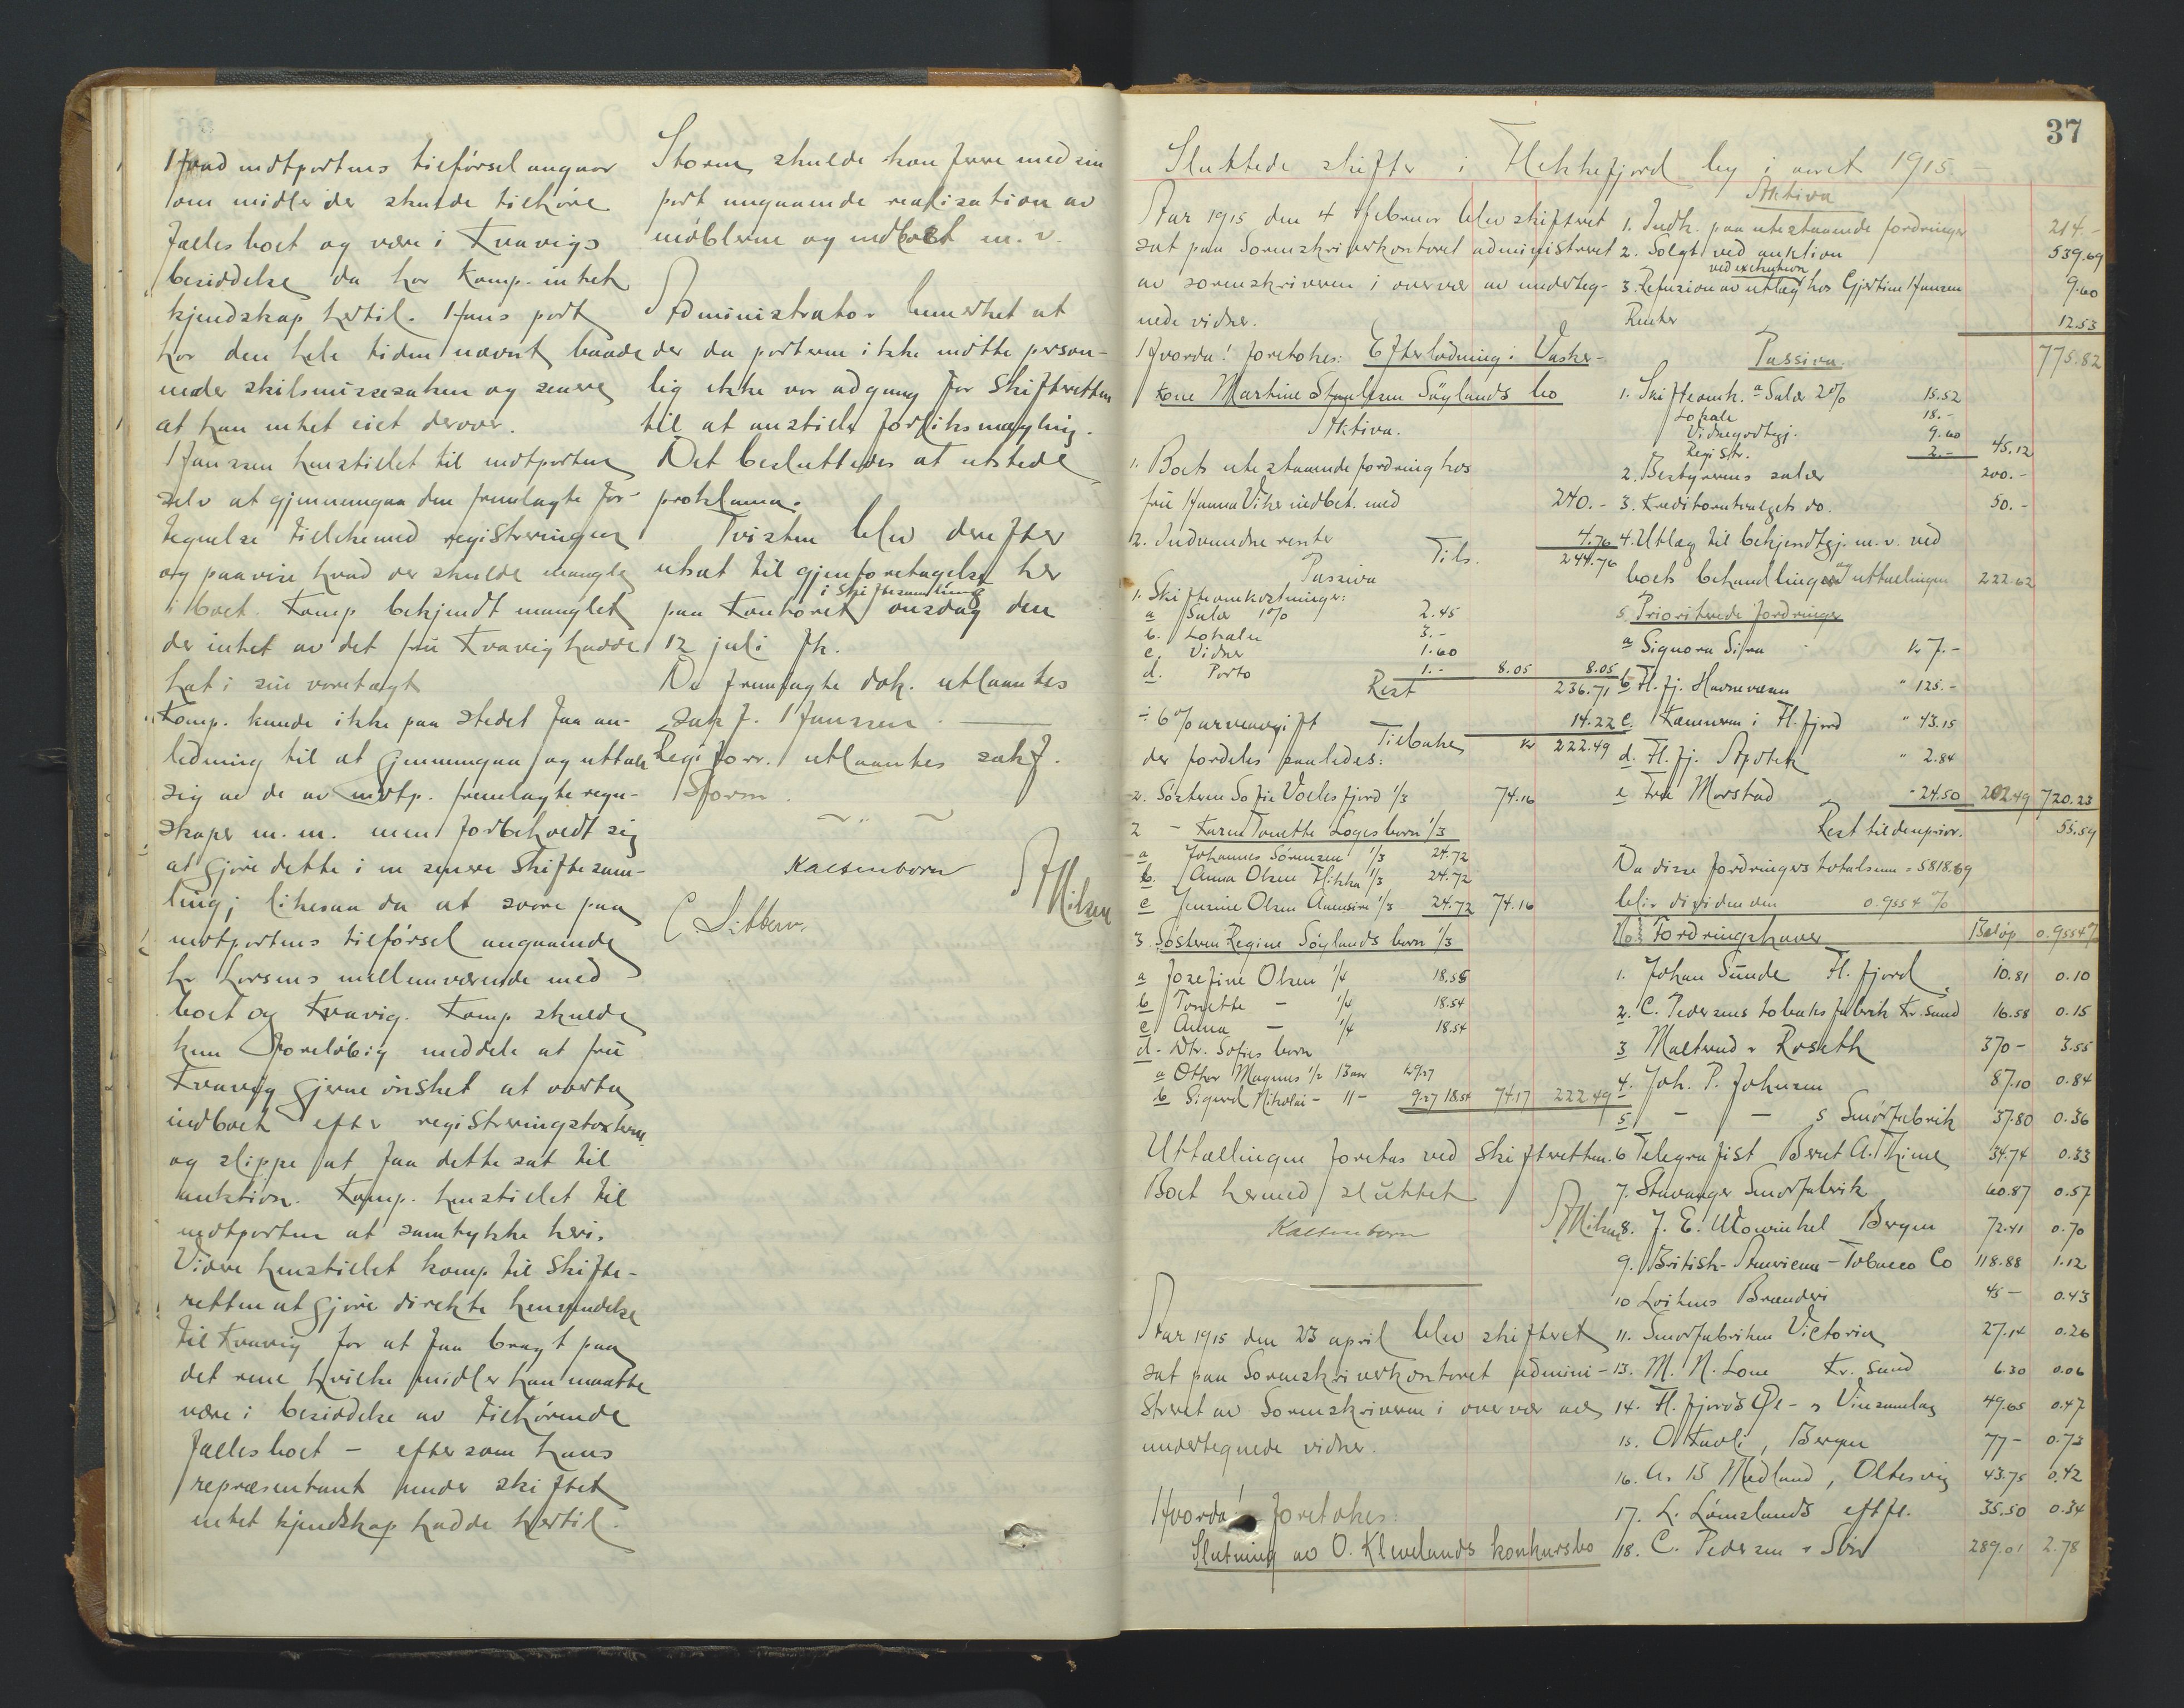 Hvad motpartens tilførsel angaar
om midler der skulde tilhøre
fællesboet og være i Kvavigs
besiddelse da har komp. intet
kjendskap hertil. Hans part
har den hele tiden nævnt baade
under skilsmissesaken og senere
at han intet eiet derover.
Hanssen henstillet til motparten
selv at gjennemgaa den fremlagte for-
tegnelse tillikemed registreringen
og paavise hvad der skulde mangle
i boet. Komp bekjendt manglet
der intet av det fru Kvavig hadde
hat i sin varetægt
Komp. kunde ikke paa stedet faa an-
ledning til at gjennemgaa og uttale
sig av de av motp. fremlagte regn-
skaper m. m. men forbeholdt sig
at gjøre dette i en senere skiftesam-
ling; likesaa da at svare paa
motpartens tilførsel angaaende
hr Larsens mellemværende med
boet og Kvavig. Komp skulde
kun foreløbig meddele at fru
Kvavig gjerne ønsket at overta
indboet efter registreringstaksten
og slippe at faa dette sat til
auktion. Komp. henstillet til
motparten at samtykke heri.
Videre henstillet komp. til skifte-
retten at gjøre direkte henvendelse
til Kvavig for at faa bragt paa
det rene hvilke midler han maatte
være i besiddelse av tilhørende
fællesboet – eftersom hans
repræsentant under skiftet
intet kjendskap hadde hertil.
Storm skulde konferere med sin
part angaaende realisation av
møblerne og indboet m. v.
Administrator bemerket at
der da parterne ikke møtte person-
lig ikke var adgang for skifteretten
til at anstille forliksmægling.
Det besluttedes at utstede
proklama.
Tvisten blev derefter
utsat til gjenforetagelse her
i skiftesamling
paa kontoret onsdag den
12 juli fk.
De fremlagte dok. utlaantes
sakf. Hanssen.
Regi forr. utlaantes sakf.
Storm.
Kaltenborn
A Nilsen
37
Sluttede skifter i Flekkefjord by i aaret 1915 –
Aar 1915 den 4 februar blev skifteret
sat paa Sorenskriverkontoret administreret
av sorenskriveren i overvær av underteg-
nede vidner.
Hvorda! foretokes: Efterlodning i Vasker-
kone Martine Søylands bo
Aktiva.
1. Boets utestaaende fordring hos
fru Hanna Vike indbet. med 240.-
2. Indvundne renter 4.76
Tils. 244.76
Passiva
1. Skifteomkostninger:
a Salær 1% 2.45
b. Lokale 3.-
c. Vidner 1.60
d. Porto 1.- 8.05 8.05
Rest 236.71
÷ 6% arveavgift 14.22
Tilbake kr 222.49
der fordeles saaledes:
2. Søsteren Sofie Voilesfjord 1/3 74.16
2 – Karen Tonette Loges barn 1/3
a Johannes Sørensen 1/3 24.72
b. Anna Olsen Flikka 1/3 24.72
c Jensine Olsen 1/3 24.72 74.16
3. Søsteren Regine Søylands barn 1/3
a Josefine Olsen 1/4 18.55
b Tonette – 1/4 18.54
c Anna – 1/4 18.54
d. Sofies barn
a Othar Magnus 1/2 9.27
b Sigurd Nikolai – 11 – 9.27 18.54 74.17 222.49
Uttællingen foretas ved skifteretten.
Boet hermed sluttet
Kaltenborn
A Nilsen
Aar 1915 den 23 april blev skifteret
sat paa Sorenskriverkontoret admini-
streret av Sorenskriveren i overvær av
undertegnede vidner.
Hvorda! foretokes:
Slutning av O. Klevelands konkursbo
Aktiva
1. Indk. paa utestaaende fordringer 214.-
2. Solgt ved auktion 539.69
ved exekution
3. Refusion av utlæg hos Gjertine Hansen 9.60
Renter 12.53
775.82
Passiva.
1. Skifteomk. a Salær 2% 15.52
Lokale 18.-
Vidnegodtgj. 9.60
Registr. 2.- 45.12
2. Bestyrerens salær 200.-
3. Kreditorutvalgets do. 50.-
4. Utlæg til bekjendtgj. m. v. ved
boets behandling og uttællingen 222.62
5. Prioriterede fordringer
a Signora Sira kr 7.-
b Fl. fj. Havnevæsen " 125.-
c. Kæmneren i Fl. fjord " 43.15
d. Fl. fj. Apotek " 2.84
e Fru Morstad - 24.50 202.49 720.23
Rest til uprior. 55.59
Da disse fordringers totalsum = 5818.69
blir dividenden 0.9554 %
No. Fordringshaver Beløp 0.9554%
1. Johan Sunde Fl. fjord 10.81 0.10
2. C. Pedersens tobaksfabrik Kr.sand 16.58 0.15
3 Malterud & Roseth 370 - 3.55
4. Joh. P. Johnsen 87.10 0.84
5 – – s Smørfabrik 37.80 0.36
6 Telegrafist Beret A. Thime 34.74 0.33
7. Stavanger Smørfabrik 60.87 0.57
8. J. E. Mowinkel Bergen 72.41 0.70
9. British-American-Tobacco Co 118.88 1.12
10 Loitens Brænderi 45 - 0.43
11. Smørfabriken Victoria 27.14 0.26
13. M. N. Lome Kr. sand 6.30 0.06
14. Fl. fjords Øl - & Vinsamlag 49.65 0.47
15. O Kavli, Bergen 77 - 0.73
16. A. B Midland, Oltesvig 43.75 0.42
17. L. Lømslands eftf. 35.50 0.34
18. C. Pedersen & Søn 289.01 2.78